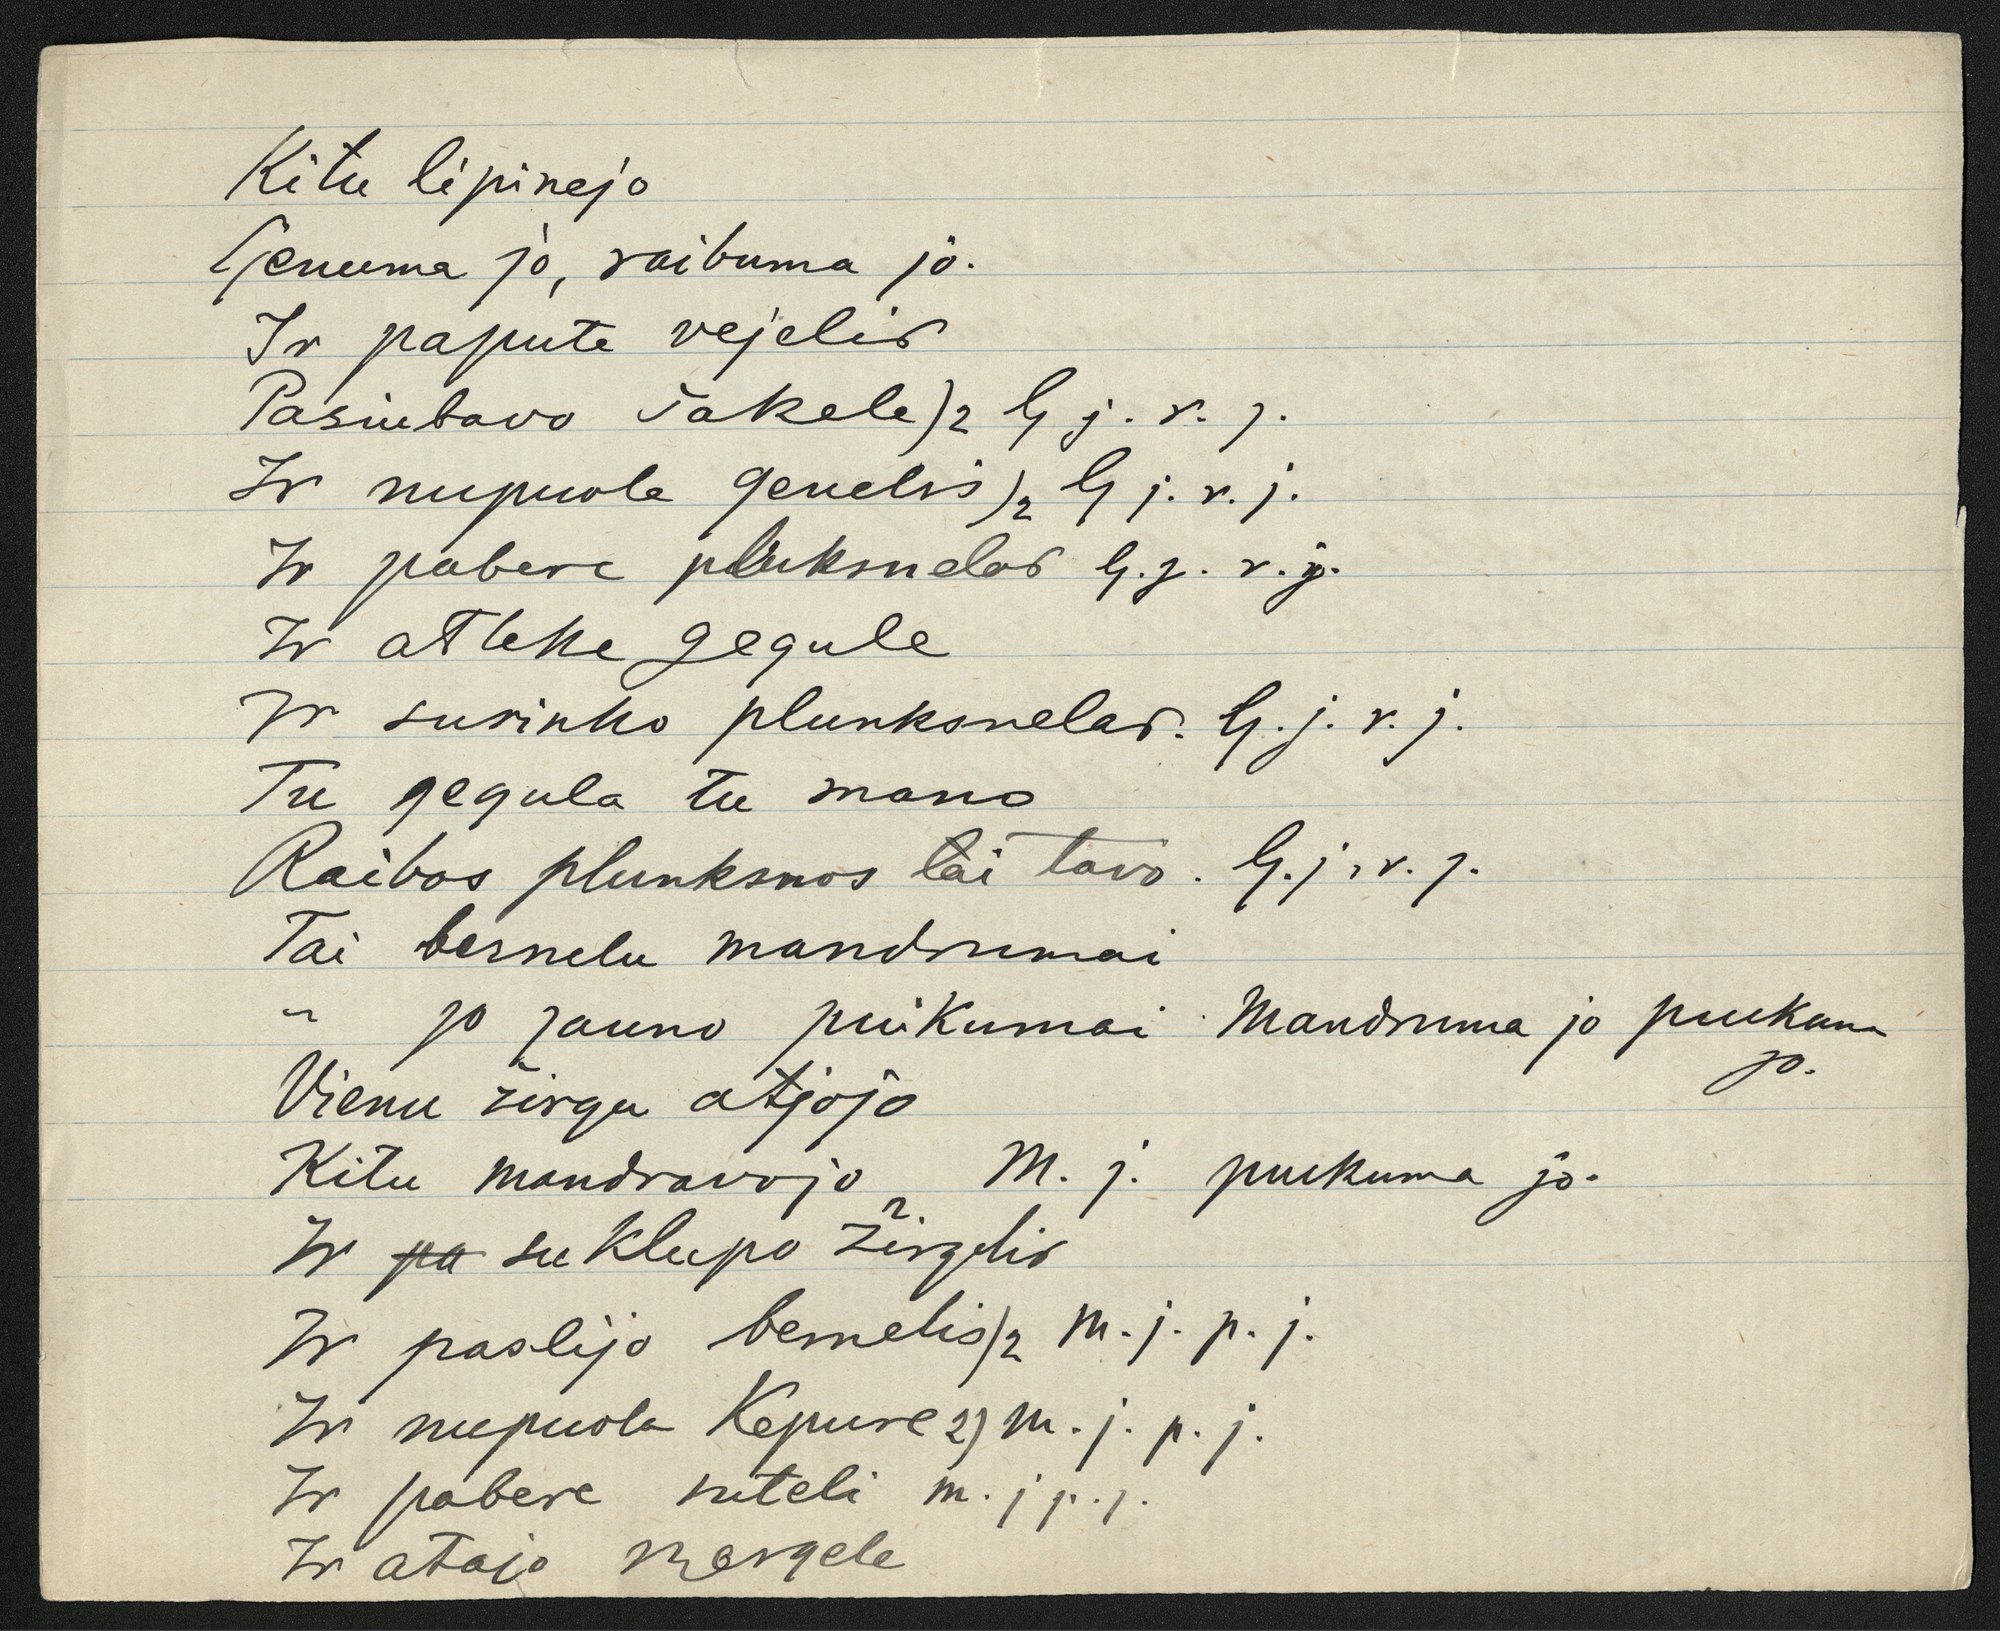 Kitu lipinejo
Genuma jo, raibuma jo.
Ir papute vejelis
Pasiubavo šakele)2 G j. r. j.
Ir nupuola genelis)2 G j. r. j.
Ir pabere pluksnelas G. j. r. j.
Ir atleke gegule
Ir surinko plunksnelas. G. j. r. j.
Tu gegula tu mano
Raibos plunksnos tai tavo. G. j. r. j.
Tai bernelu mandrumai
" jo jauno puikumai Mandruma jo puikuma
jo.
Vienu žirgu atjojo
Kitu mandravojo 2 M. j. puikuma jo.
Ir pa suklupo žirgelis
Ir paslijo bernelis)2 m. j. p. j.
Ir nupuola Kepure 2) m. j. p. j.
Ir pabere ruteli m. j p. j.
Ir atajo mergele